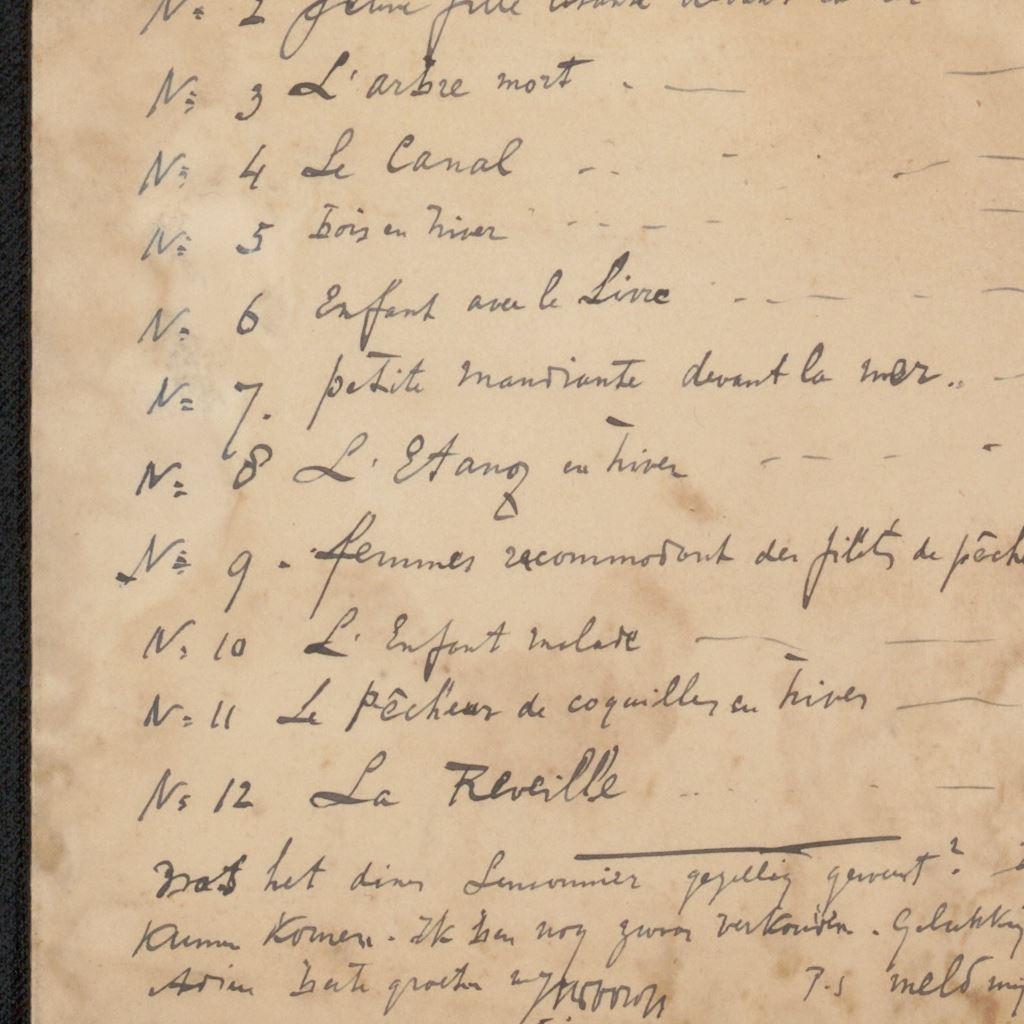 N: 2 Jeune fille devant la
N: 3 L'arbre mort . —
N: 4 Le Canal
N: 5 Bois en hiver
N: 6 Enfant avec le Livre
N: 7. petite mandiante devant la mer..
N: 8 L'Etang en hiver
N: 9 - femmes recommodant des filets de pêche
N: 10 L'Enfant malade
N: 11 Le Pêcheur de coquilles en hiver
N: 12 La Reveille
Was het diner Lemonnier gezellig geweest?
Kunnen komen. Ik ben nog zwaar verkouden. Gelukkig
Adieu Beste groeten P.S meld mij